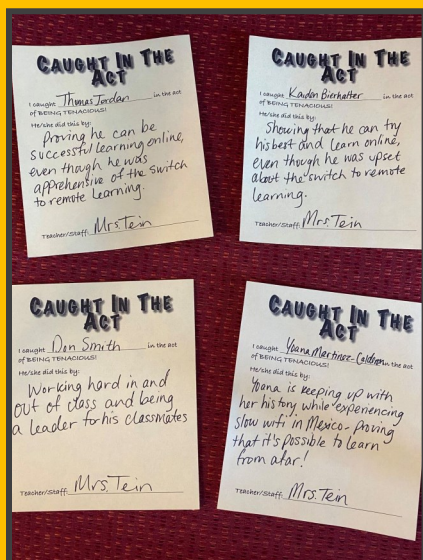 CAUGHT IN THE
ACT
I caught Thomas Jordan in the act
of BEING TENACIOUS!
He/she did this by:
Proving he can be
successful learning online,
even though he was
apprehensive of the switch
to remote learning.
Teacher/Staff: Mrs. Tein
CAUGHT IN THE
ACT
I caught Kaiden Bierhalter in the act
of BEING TENACIOUS!
He/she did this by:
Showing that he can try
his best and learn online,
even though he was upset
about the switch to remote
learning.
Teacher/Staff: Mrs. Tein
CAUGHT IN THE
ACT
I caught Don Smith in the act
of BEING TENACIOUS!
He/she did this by:
Working hard in and
out of class and being
a leader for his classmates
Teacher/Staff: Mrs. Tein
CAUGHT IN THE
ACT
I caught Yoana Martinez-Calderon in the act
of BEING TENACIOUS!
He/she did this by:
Yoana is keeping up with
her history while experiencing
slow wifi in Mexico - proving
that it's possible to learn
from afar!
Teacher/Staff: Mrs. Tein